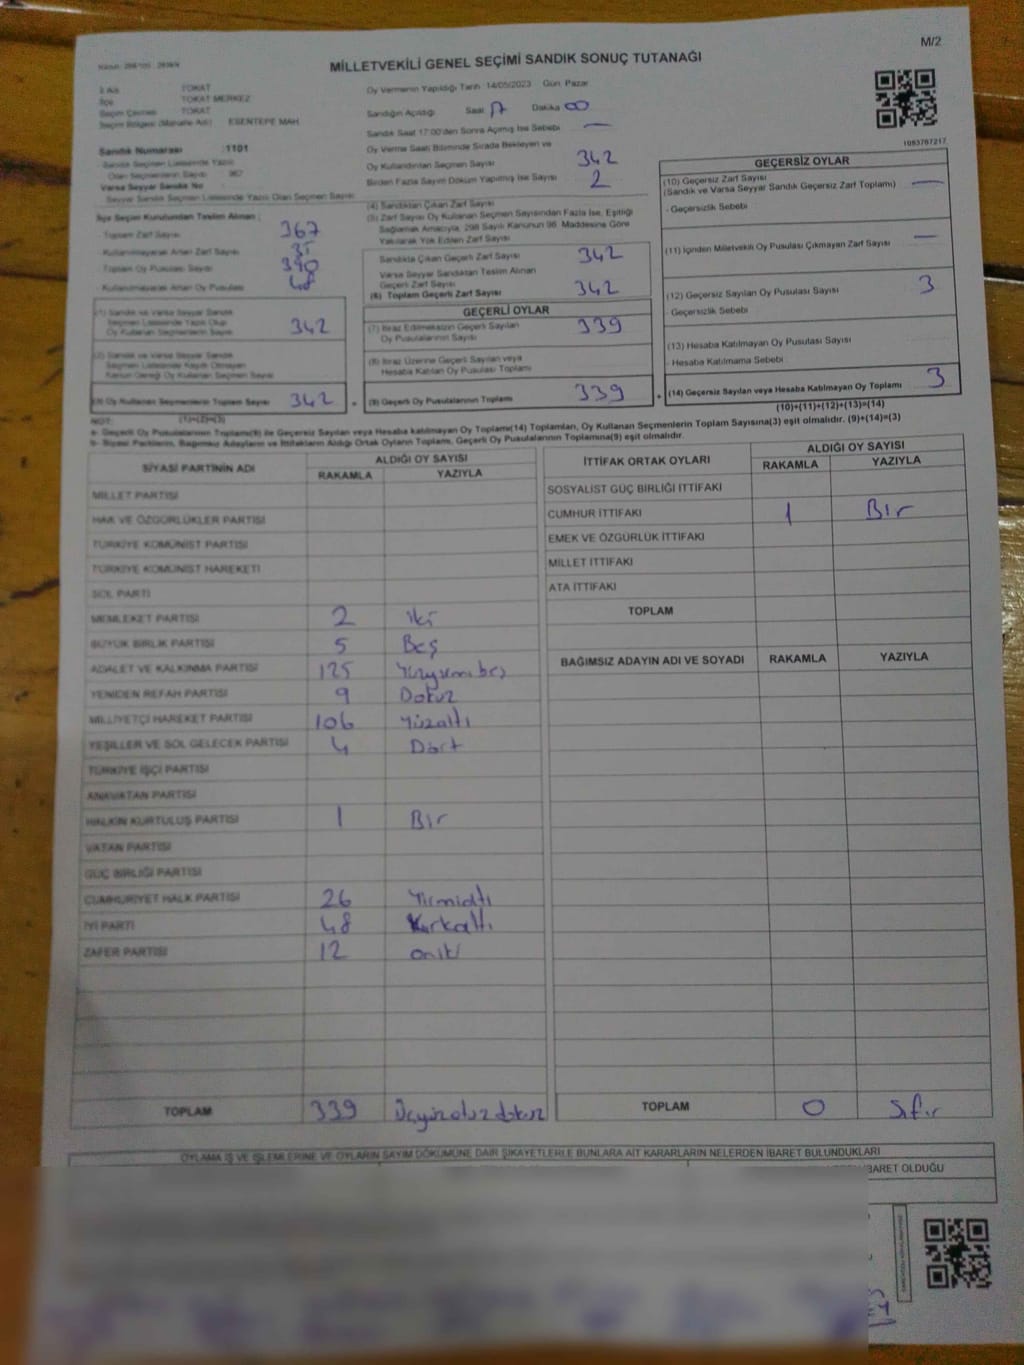 M/2
MİLLETVEKİLİ GENEL SEÇİMİ SANDIK SONUÇ TUTANAĞI
İl Adı : TOKAT
İlçe : TOKAT MERKEZ
Seçim Çevresi : TOKAT
Seçim Bölgesi (Mahalle Adı) : ESENTEPE MAH.
Sandık Numarası : 1101
Sandık Seçmen Listesinde Yazılı
Olan Seçmenlerin Sayısı
Varsa Seyyar Sandık No
Seyyar Sandık Seçmen Listesinde Yazılı Olan Seçmen Sayısı
Oy Vermenin Yapıldığı Tarih : 14/05/2023 Gün : Pazar
Sandığın Açıldığı Saat 17 Dakika 00
Sandık Saat 17:00'den Sonra Açılmış İse Sebebi : —
Oy Verme Saati Bitiminde Sırada Bekleyen ve
Oy Kullandırılan Seçmen Sayısı 342
Birden Fazla Sayım Döküm Yapılmış İse Sayısı 2
İlçe Seçim Kurulundan Teslim Alınan :
- Toplam Zarf Sayısı 367
- Kullanılmayarak Artan Zarf Sayısı
- Toplam Oy Pusulası Sayısı 390
- Kullanılmayarak Artan Oy Pusulası 48
(1) Sandık ve Varsa Seyyar Sandık
Seçmen Listesinde Yazılı Olup
Oy Kullanan Seçmenlerin Sayısı 342
(2) Sandık ve Varsa Seyyar Sandık
Seçmen Listesinde Kaydı Olmayan
Kanun Gereği Oy Kullanan Seçmen Sayısı
(3) Oy Kullanan Seçmenlerin Toplam Sayısı 342
(1)+(2)=(3)
(4) Sandıktan Çıkan Zarf Sayısı
(5) Zarf Sayısı Oy Kullanan Seçmen Sayısından Fazla İse, Eşitliği
Sağlamak Amacıyla, 298 Sayılı Kanunun 98. Maddesine Göre
Yakılarak Yok Edilen Zarf Sayısı
Sandıkta Çıkan Geçerli Zarf Sayısı 342
Varsa Seyyar Sandıktan Teslim Alınan
Geçerli Zarf Sayısı
(6) Toplam Geçerli Zarf Sayısı 342
GEÇERLİ OYLAR
(7) İtiraz Edilmeksizin Geçerli Sayılan
Oy Pusulalarının Sayısı 339
(8) İtiraz Üzerine Geçerli Sayılan veya
Hesaba Katılan Oy Pusulası Toplamı
(9) Geçerli Oy Pusulalarının Toplamı 339
1083767217
GEÇERSİZ OYLAR
(10) Geçersiz Zarf Sayısı —
(Sandık ve Varsa Seyyar Sandık Geçersiz Zarf Toplamı)
- Geçersizlik Sebebi
(11) İçinden Milletvekili Oy Pusulası Çıkmayan Zarf Sayısı —
(12) Geçersiz Sayılan Oy Pusulası Sayısı 3
- Geçersizlik Sebebi
(13) Hesaba Katılmayan Oy Pusulası Sayısı
- Hesaba Katılmama Sebebi
(14) Geçersiz Sayılan veya Hesaba Katılmayan Oy Toplamı 3
(10)+(11)+(12)+(13)=(14)
NOT:
a- Geçerli Oy Pusulalarının Toplamı(9) ile Geçersiz Sayılan veya Hesaba katılmayan Oy Toplamı(14) Toplamları, Oy Kullanan Seçmenlerin Toplam Sayısına(3) eşit olmalıdır. (9)+(14)=(3)
b- Siyasi Partilerin, Bağımsız Adayların ve İttifakların Aldığı Ortak Oyların Toplamı, Geçerli Oy Pusulalarının Toplamına(9) eşit olmalıdır.
SİYASİ PARTİNİN ADI ALDIĞI OY SAYISI
RAKAMLA YAZIYLA
MİLLET PARTİSİ
HAK VE ÖZGÜRLÜKLER PARTİSİ
TÜRKİYE KOMÜNİST PARTİSİ
TÜRKİYE KOMÜNİST HAREKETİ
SOL PARTİ
MEMLEKET PARTİSİ 2 iki
BÜYÜK BİRLİK PARTİSİ 5 Beş
ADALET VE KALKINMA PARTİSİ 125 Yüzyirmibeş
YENİDEN REFAH PARTİSİ 9 Dokuz
MİLLİYETÇİ HAREKET PARTİSİ 106 Yüzaltı
YEŞİLLER VE SOL GELECEK PARTİSİ 4 Dört
TÜRKİYE İŞÇİ PARTİSİ
ANAVATAN PARTİSİ
HALKIN KURTULUŞ PARTİSİ 1 Bir
VATAN PARTİSİ
GÜÇ BİRLİĞİ PARTİSİ
CUMHURİYET HALK PARTİSİ 26 Yirmialtı
İYİ PARTİ 48 Kırkaltı
ZAFER PARTİSİ 12 oniki
TOPLAM 339 Üçyüzotuzdokuz
İTTİFAK ORTAK OYLARI ALDIĞI OY SAYISI
RAKAMLA YAZIYLA
SOSYALİST GÜÇ BİRLİĞİ İTTİFAKI
CUMHUR İTTİFAKI 1 Bir
EMEK VE ÖZGÜRLÜK İTTİFAKI
MİLLET İTTİFAKI
ATA İTTİFAKI
TOPLAM
BAĞIMSIZ ADAYIN ADI VE SOYADI RAKAMLA YAZIYLA
TOPLAM 0 Sıfır
OYLAMA İŞ VE İŞLEMLERİNE VE OYLARIN SAYIM DÖKÜMÜNE DAİR ŞİKAYETLERLE BUNLARA AİT KARARLARIN NELERDEN İBARET BULUNDUKLARI
BARET OLDUĞU